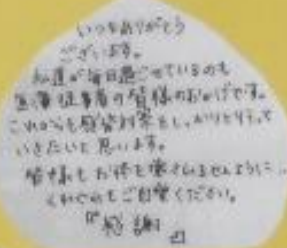 いつもありがとう
ございます。
私達が毎日過ごせているのも
医療従事者の皆様のおかげです。
これからも感染対策をしっかりと行って
いきたいと思います。
皆様もお体を壊されませんように、
くれぐれもご自愛ください。
『感謝』